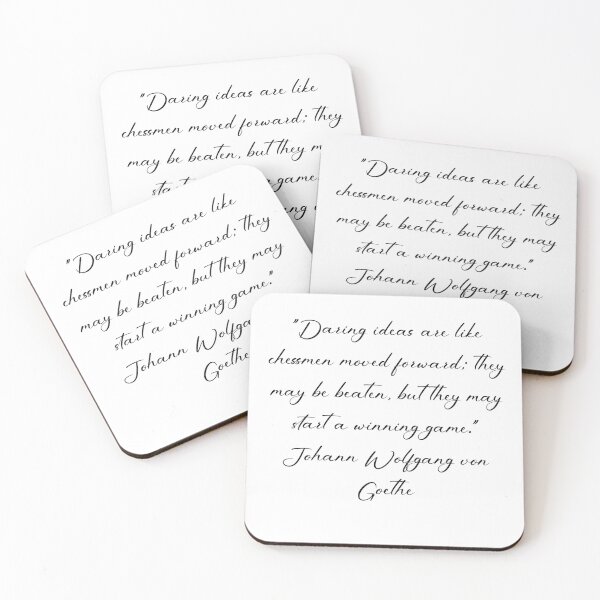 "Daring ideas are like
chessmen moved forward; they
may be beaten, but they may
start a winning game
ng von
"Daring ideas are like
chessmen moved forward; they
may be beaten, but they may
start a winning game."
Johann Wolfgang von
"Daring ideas are like
chessmen moved forward; they
may be beaten, but they may
start a winning game."
Johann Wolfgang
Goethe
"Daring ideas are like
chessmen moved forward; they
may be beaten, but they may
start a winning game."
Johann Wolfgang von
Goethe